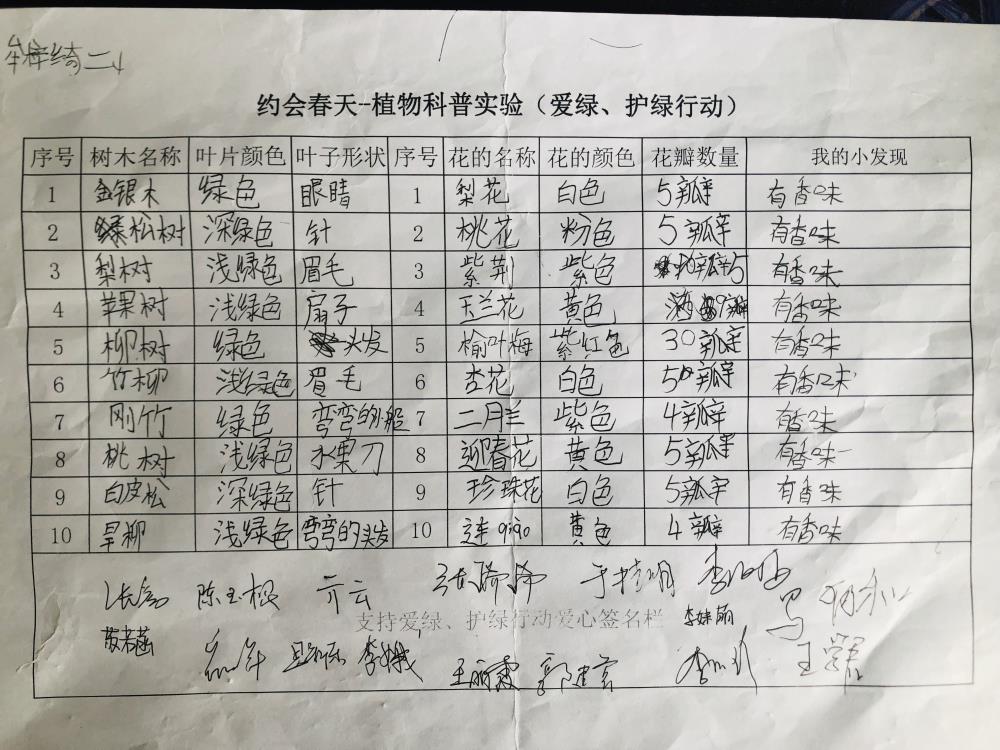 二4
约会春天--植物科普实验（爱绿、护绿行动）
序号 树木名称 叶片颜色 叶子形状 序号 花的名称 花的颜色 花瓣数量 我的小发现
1 金银木 绿色 眼睛 1 梨花 白色 5瓣 有香味
2 松树 深绿色 针 2 桃花 粉色 5瓣 有香味
3 梨树 浅绿色 眉毛 3 紫荆 紫色 瓣5 有香味
4 苹果树 浅绿色 扇子 4 玉兰花 黄色 9瓣 有香味
5 柳树 绿色 头发 5 榆叶梅 紫红色 30瓣 有香味
6 竹柳 浅绿色 眉毛 6 杏花 白色 5瓣 有香味
7 刚竹 绿色 弯弯的小船 7 二月兰 紫色 4瓣 有香味
8 桃树 浅绿色 水果刀 8 迎春花 黄色 5瓣 有香味
9 白皮松 深绿色 针 9 珍珠花 白色 5瓣 有香味
10 旱柳 浅绿色 弯弯的头发 10 连 黄色 4瓣 有香味
陈玉根
支持爱绿、护绿行动爱心签名栏
李娥 王丽霞 郭建宏